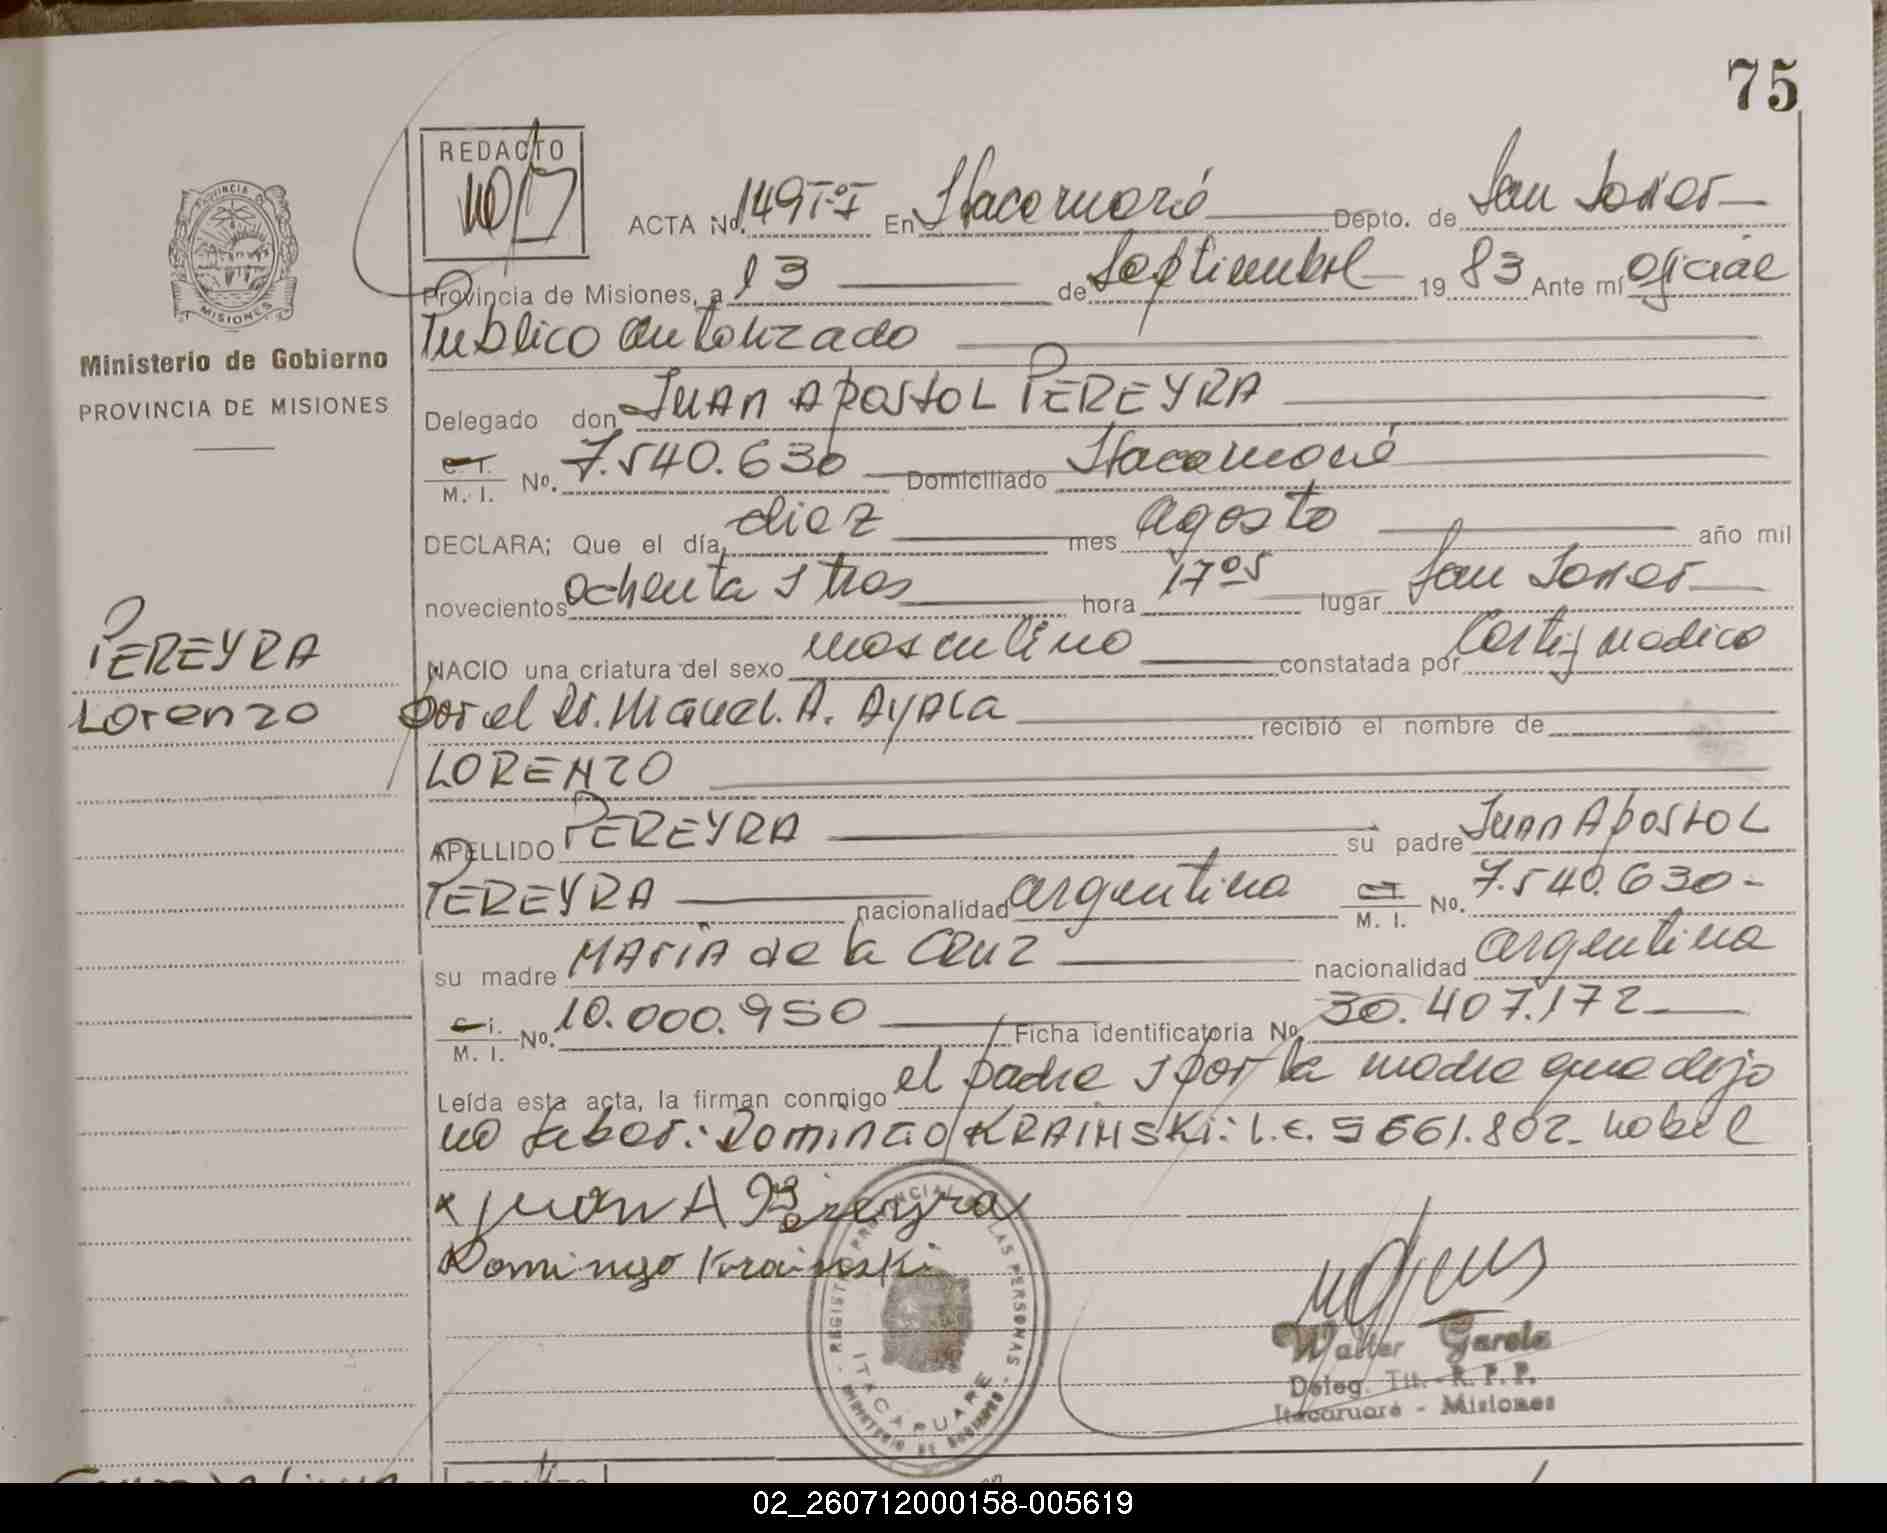 75
REDACTO
ACTA No. 149 Tº I En Itacaruaré Depto. de San Javier
Provincia de Misiones, a 13 de Septiembre 19 83 Ante mí Oficial
Publico autorizado
Ministerio de Gobierno
PROVINCIA DE MISIONES
Delegado don JUAN APOSTOL PEREYRA
C. I.
M. I. No. 7.540.630 Domiciliado Itacaruaré
DECLARA; Que el día, diez mes agosto año mil
novecientos ochenta y tres hora 17 05 lugar San Javier
NACIO una criatura del sexo masculino constatada por Certif medico
PEREYRA
Lorenzo
por el Dr. Miguel. A. AYALA recibió el nombre de
LORENZO
APELLIDO PEREYRA su padre JUAN APOSTOL
PEREYRA nacionalidad argentina C I M. I. No. 7.540.630-
su madre MARIA de la CRUZ nacionalidad argentina
C. I.
M. I. No. 10.000.950 Ficha identificatoria No 30.407.172
Leída esta acta, la firman conmigo el padre y por la madre que dijo
no saber: DOMINGO KRAINSKI: L.E. 5 661.802_ hábil
x Juan A Pereyra
Domingo Krainski
REGISTRO PROVINCIAL DE LAS PERSONAS
ITACARUARE
MINISTERIO DE GOBIERNO
Walter Garcia
Deleg. Tit. R. P. P.
Itacaruaré - Misiones
02_260712000158-005619